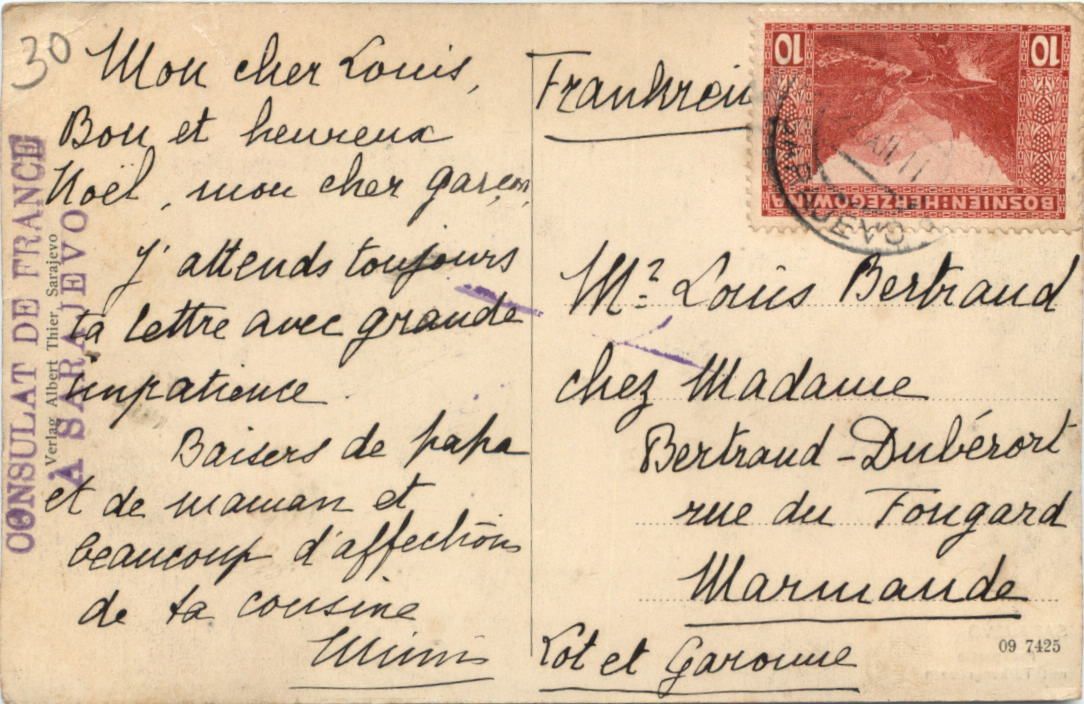 30
Mon cher Louis,
Bon et heureux
Noël, mon cher garçon,
J'attends toujours
ta lettre avec grande
impatience.
Baisers de papa
et de maman et
beaucoup d'affections
de ta cousine
Mimi
CONSULAT DE FRANCE
A SARAJEVO
Verlag Albert Thier, Sarajevo
10
10
BOSNIEN:HERZEGOWINA
SARAJEVO
Mr. Louis Bertrand
chez Madame
Bertrand-Dubérort
rue du Fougard
Marmande
Lot et Garonne
09 7425